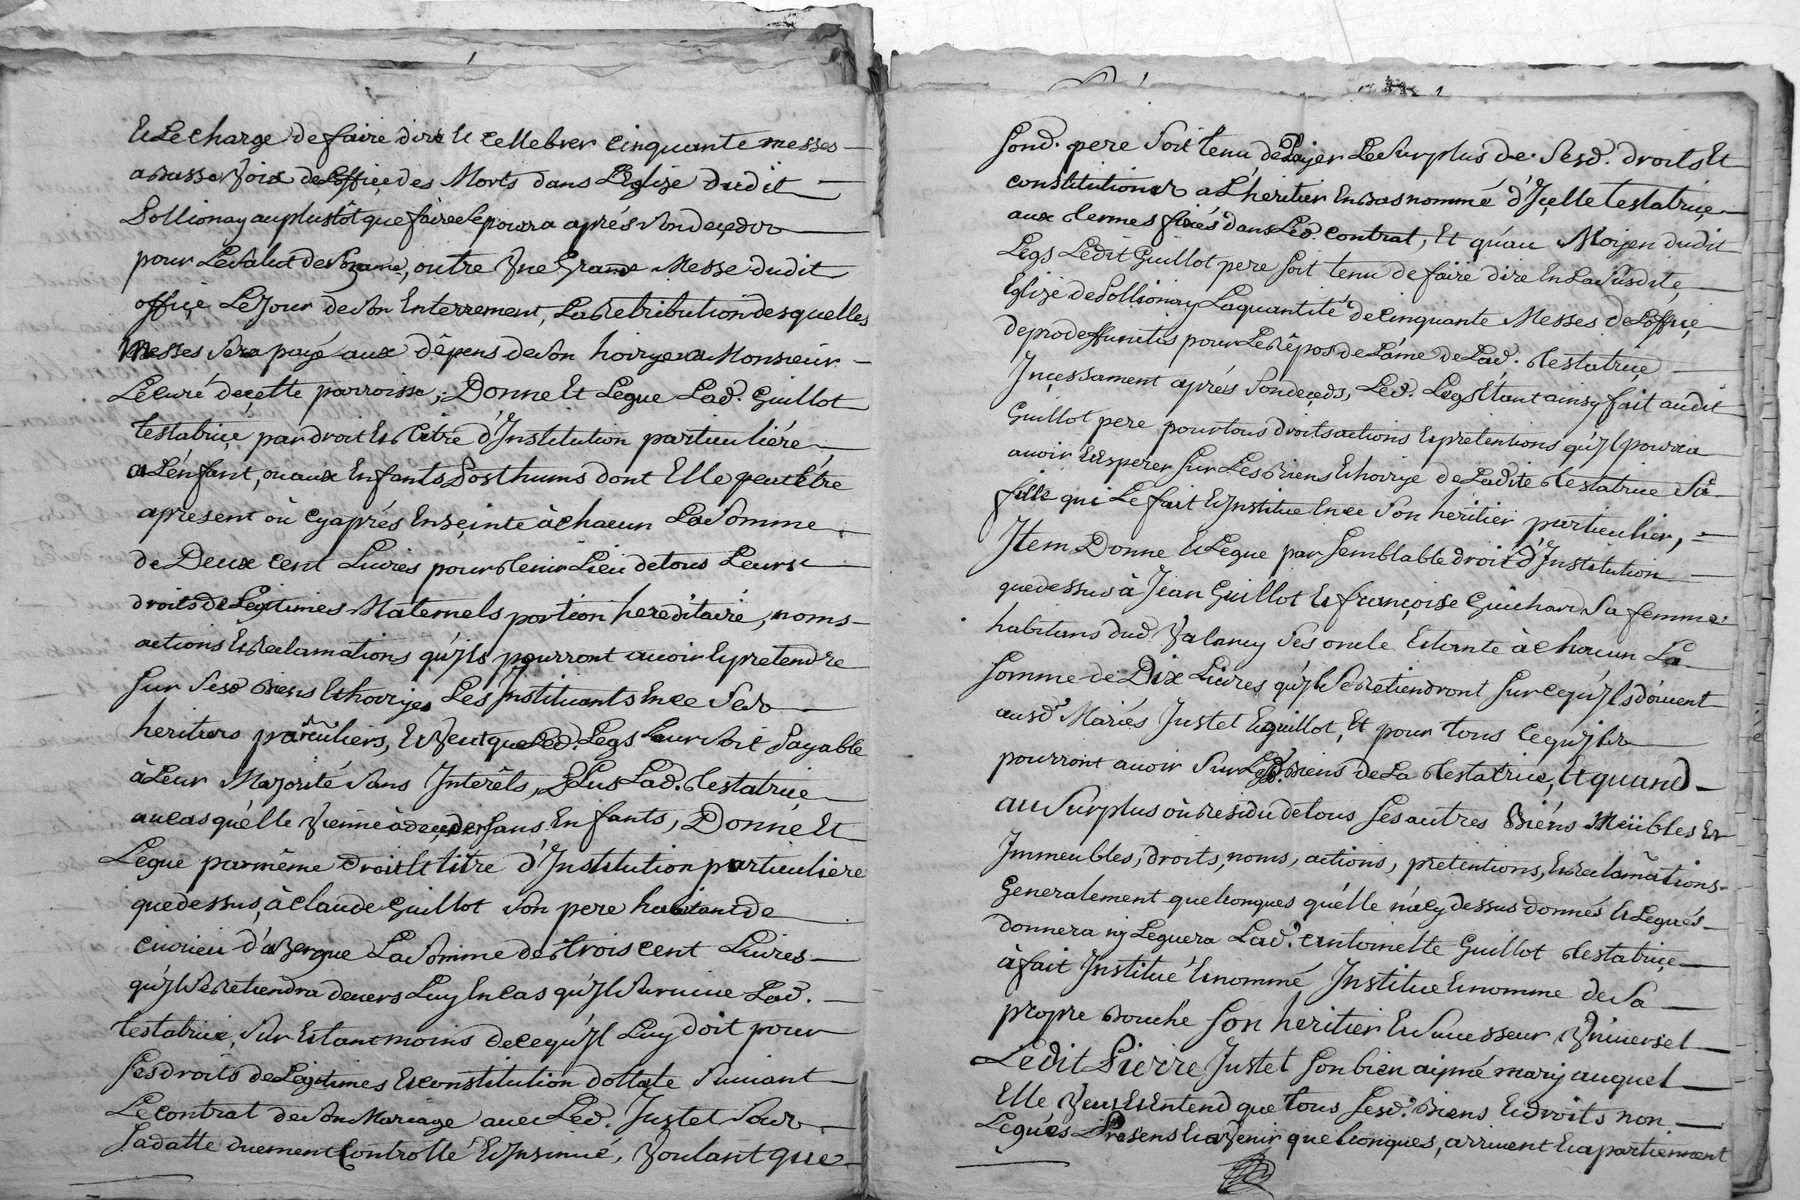 Et Le charge de faire dire et cellebrer cinquante messes
a basse voix de Loffice des Morts dans L'Eglize dudit
Sollionay au plustôt que faire se pourra aprés son deçedz
pour Le salut de son ame, outre Une Grande Messe dudit
office Le jour de son Enterrement, La Retribution desquelles
Messes sera payé aux dépens de son hoirye a Monsieur
Le Curé de cette parroisse; Donne Et Legue Lad. Guillot
testatriçe par droit Et titre d'Institution particuliére
a L'énfant, ou aux Enfants Posthums dont Elle peut être
apresent où cy aprés Enseinte à chacun La Somme
de Deux cent Livres pour tenir Lieu de tous Leurs
droits de Legitimes Maternels portion hereditaire, noms
actions Et reclamations qu'jls pourront avoir Et pretendre
sur sesd. biens Et hoiryes Les Jnstituants En ce ses
heritiers particuliers, Et Veut que Led. Legs Leur soit Payable
à Leur Majorité sans Interêts, Plus Lad. testatrice
au cas qu'élle Vienne à deçeder sans Enfants, Donne Et
Legue par même droit Et titre d'Institution particuliere
que dessus, à Claude Guillot son pere habitant de
Civrieu d'aZergue La Somme de trois cent Livres
qu'jl se retiendra devers Luy En cas qu'jl survive Lad.
testatrice, sur Et tant moins de ce qu'jl Luy doit pour
ses droits de Legitimes Et constitution dottale suivant
Le contrat de son Mariage avec Led. Justet sour
sa datte duement Controllé Et Jnsinué, Voulant que
sond. pere soit tenu de Païer Le surplus de sesd. droits Et
constitutions a L'heritier En bas nommé d'Jçelle testatriçe
aux termes fixés dans Led. contrat, Et qu'au Moÿen dudit
Legs Ledit Guillot pere soit tenu de faire dire En La susdite
Eglize de Sollionay La quantité de cinquante Messes de L'offiçe
de pro deffunctis pour Le Répos de L'áme de Lad. testatriçe
Jnçessament aprés son deçeds, Led. Legs Etant ainsy fait audit
Guillot pere pour tous droits actions Et pretentions qu'jl pourra
avoir Et Esperer sur Les biens Et hoirye de Ladite testatrice sa
fille qui Le fait Et Jnstitue En ce son heritier particulier,
Jtem Donne Et Legue par semblable droit d'Institution
que dessus à Jean Guillot Et françoise Guichard sa femme
habitans dud. Valancy ses oncle Et tante à chacun La
somme de Dix Livres qu'jls se retiendront sur ce qu'jls doivent
ausd. Mariés Justet Et guillot, Et pour tous ce qu'jls
pourront avoir sur Lesd. biens de La testatrice, Et quand
au surplus où residu de tous ses autres Biéns Meübles Et
Jmmeubles, droits, noms, actions, pretentions, Et reclamations
Generalement quelconques qu'élle n'a cy dessus donnés Et Legués
donnera ny Leguera Lad. antoinette Guillot testatriçe
à fait Jnstitué Et nommé Jnstitue Et nomme de sa
propre bouche son heritier Et successeur Vniversel
Ledit Pierre Justet son bien aymé mary auquel
Elle Veut Et Entend que tous sesd. Biens Et droits non
Legués Presens Et aVenir quelconques, arrivent Et apartiennent